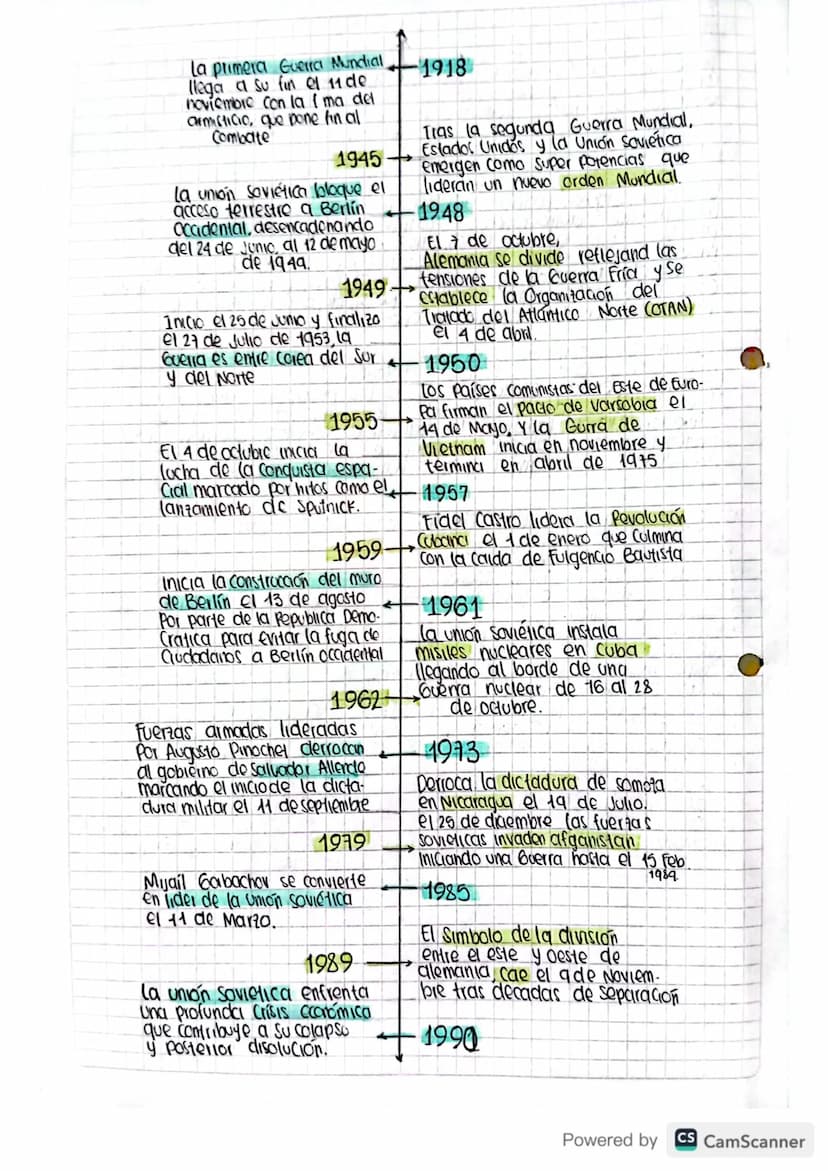 La primera Guerra Mundial
llega a su fin el 11 de
noviembre con la fima del
armisticio, que pone fin al
combate
1918
Tras la segunda Guerra Mundial,
Estados Unidos y la Unión Soviética
emergen como super potencias que
lideran un nuevo orden Mundial.
1945
La unión soviética bloque el
acceso terrestre a Berlín
occidental, desencadenando
del 24 de Junio, al 12 de mayo
de 1949.
1948
El 7 de octubre,
Alemania se divide reflejand las
tensiones de la Guerra Fría y se
establece la Organización del
Tratado del Atlántico Norte (OTAN)
el 4 de abril.
1949
Inicio el 25 de Junio y finalizo
el 27 de Julio de 1953, la
Guerra es entre Corea del Sur
y del Norte
1950
Los Países comunistas del Este de Euro-
pa firman el pacto de varsobia el
14 de Mayo, y la Gurra de
Vietnam inicia en noviembre y
termina en abril de 1975
1955
El 4 de octubre inicia la
lucha de la conquista espa-
cial marcado por hitos como el
lanzamiento de Sputnick.
1957
Fidel Castro lidera la Revolución
Cubana el 1 de enero que culmina
con la caida de Fulgencio Bautista
1959
Inicia la construcción del muro
de Berlín el 13 de agosto
por parte de la Republica Demo-
cratica para evitar la fuga de
ciudadanos a Berlín occidental
1961
La unión soviética instala
misiles nucleares en Cuba
llegando al borde de una
Guerra nuclear de 16 al 28
de octubre.
1962
Fuerzas armadas lideradas
por Augusto Pinochet derrocan
al gobierno de salvador Allende
marcando el inicio de la dicta-
dura militar el 11 de septiembre
1973
Derroca la dictadura de somoza
en Nicaragua el 19 de Julio.
el 25 de diciembre las fuerzas
sovieticas invaden afganistan
iniciando una Guerra hasta el 15 Feb
1989
1979
Mijail Gorbachov se convierte
en lider de la unión soviética
el 11 de Marzo.
1985
El simbolo de la división
entre el este y oeste de
alemania, cae el 9 de Noviem-
bre tras decadas de separación
1989
La unión sovietica enfrenta
una profunda crisis económica
que contribuye a su colapso
y posterior disolución.
1990
Powered by CS CamScanner